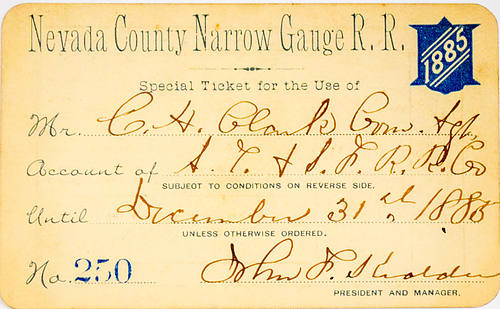 Nevada County Narrow Gauge R. R.
1885
Special Ticket for the Use of
Mr. C. H. Clark Com. Agt.
Account of A. T. & S. F. R. R. Co
SUBJECT TO CONDITIONS ON REVERSE SIDE.
Until December 31st 1885
UNLESS OTHERWISE ORDERED.
No. 250 John F. Kidder
PRESIDENT AND MANAGER.